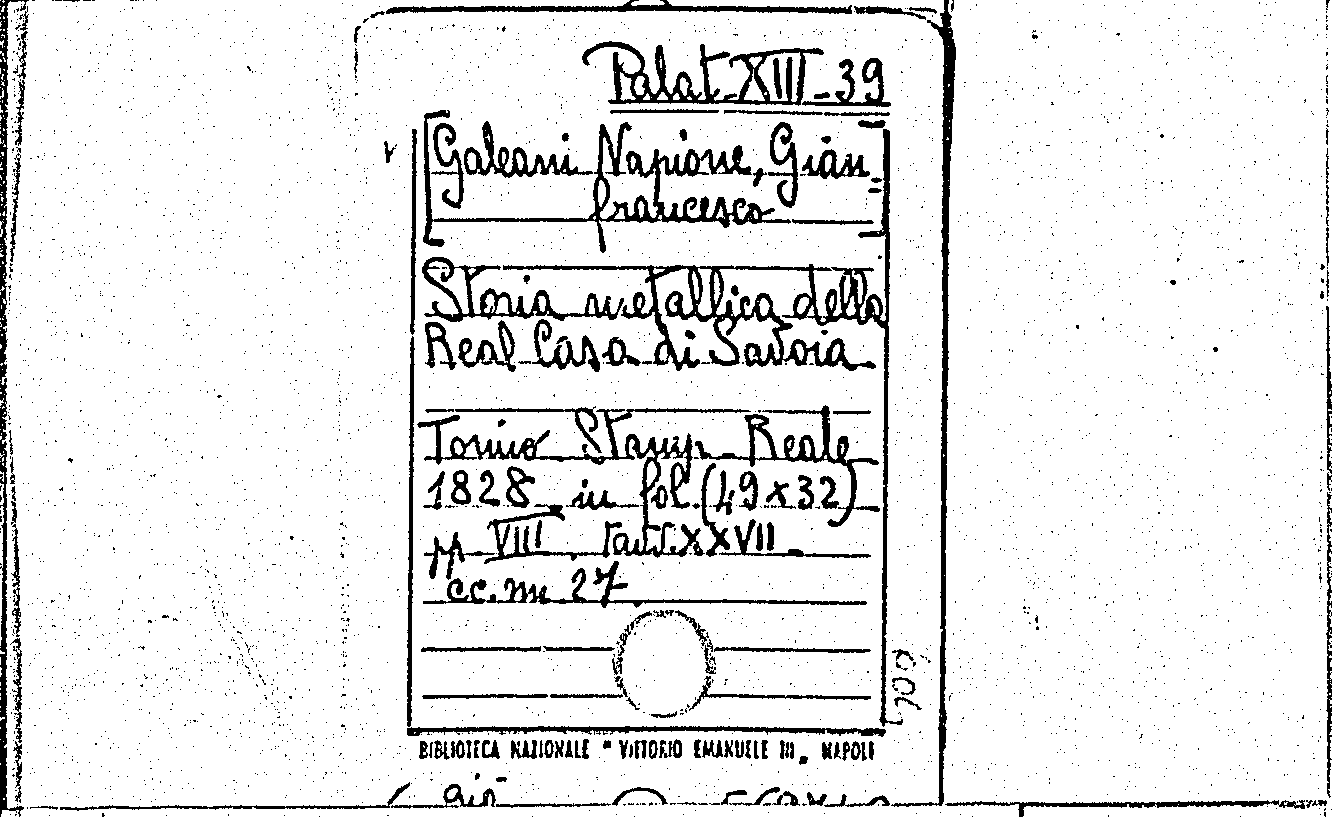 Palat. XIII - 39
[Galeani Napione, Gian=
francesco]
Storia metallica della
Real Casa di Savoia
Torino Stamp. Reale
1828 in fol. (49x32)
pp. VIII. tavv. XXVII.
cc. nn 27.
BIBLIOTECA NAZIONALE "VITTORIO EMANUELE III„ NAPOLI